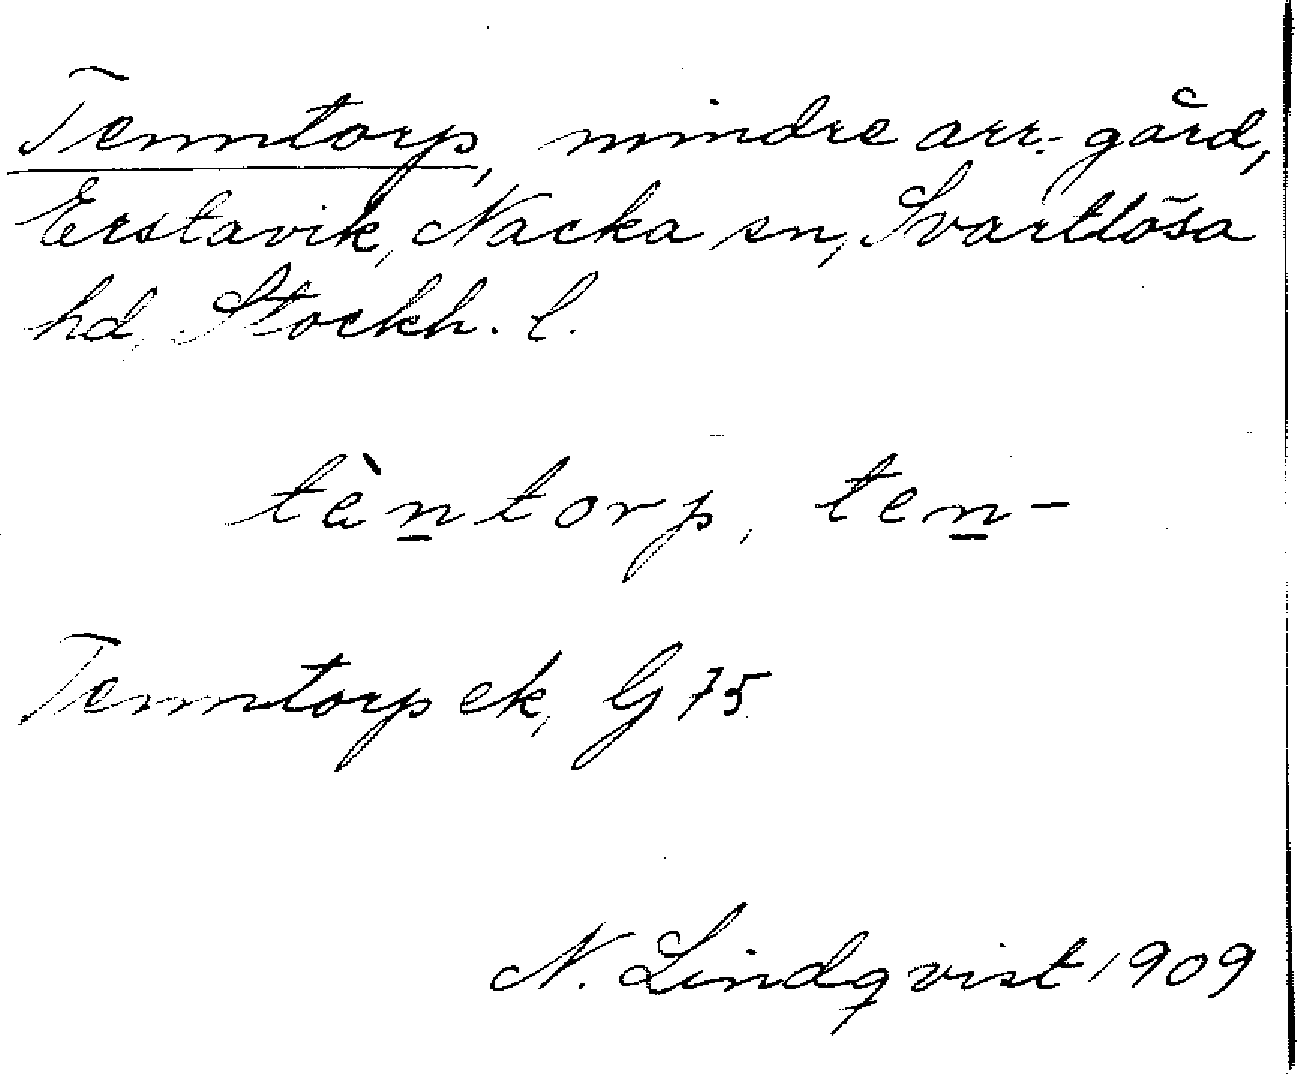 Tenntorp, mindre arr.-gård,
Erstavik, Nacka sn, Svartlösa
hd, Stockh. l.
tèntorp, ten-
Tenntorp ek, G 75
N. Lindqvist 1909